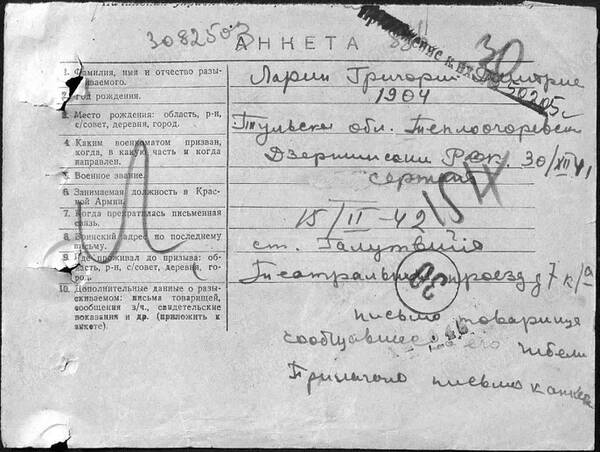 3082503
АНКЕТА
30
50205с
1. Фамилия, имя и отчество разы-
скиваемого.
Ларин Григорий Дмитрие
2. Год рождения.
1904
3. Место рождения: область, р-н,
с/совет, деревня, город.
Тульская обл. Теплоогаревск
4. Каким военкоматом призван,
когда, в какую часть и когда
направлен.
Дзержинским Рвк. 30/XII 41
5. Военное звание.
сержант
6. Занимаемая должность в Крас-
ной Армии.
7. Когда прекратилась письменная
связь.
15/II-42
8. Воинский адрес по последнему
письму.
ст.
9. Где проживал до призыва: об-
ласть, р-н, с/совет, деревня, го-
род.
Театральный проезд д 7 к/а
30
10. Дополнительные данные о разы-
скиваемом: письма товарищей,
сообщения з/ч., свидетельские
показания и др. (приложить к
анкете).
письмо товарища
сообщавшее о его гибели
письмо к анкете